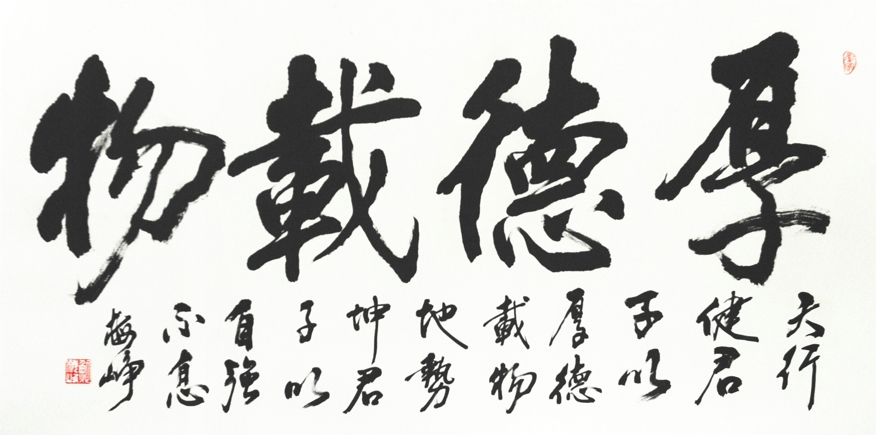 厚德載物
天行
健君
子以
厚德
載物
地勢
坤君
子以
自強
不息